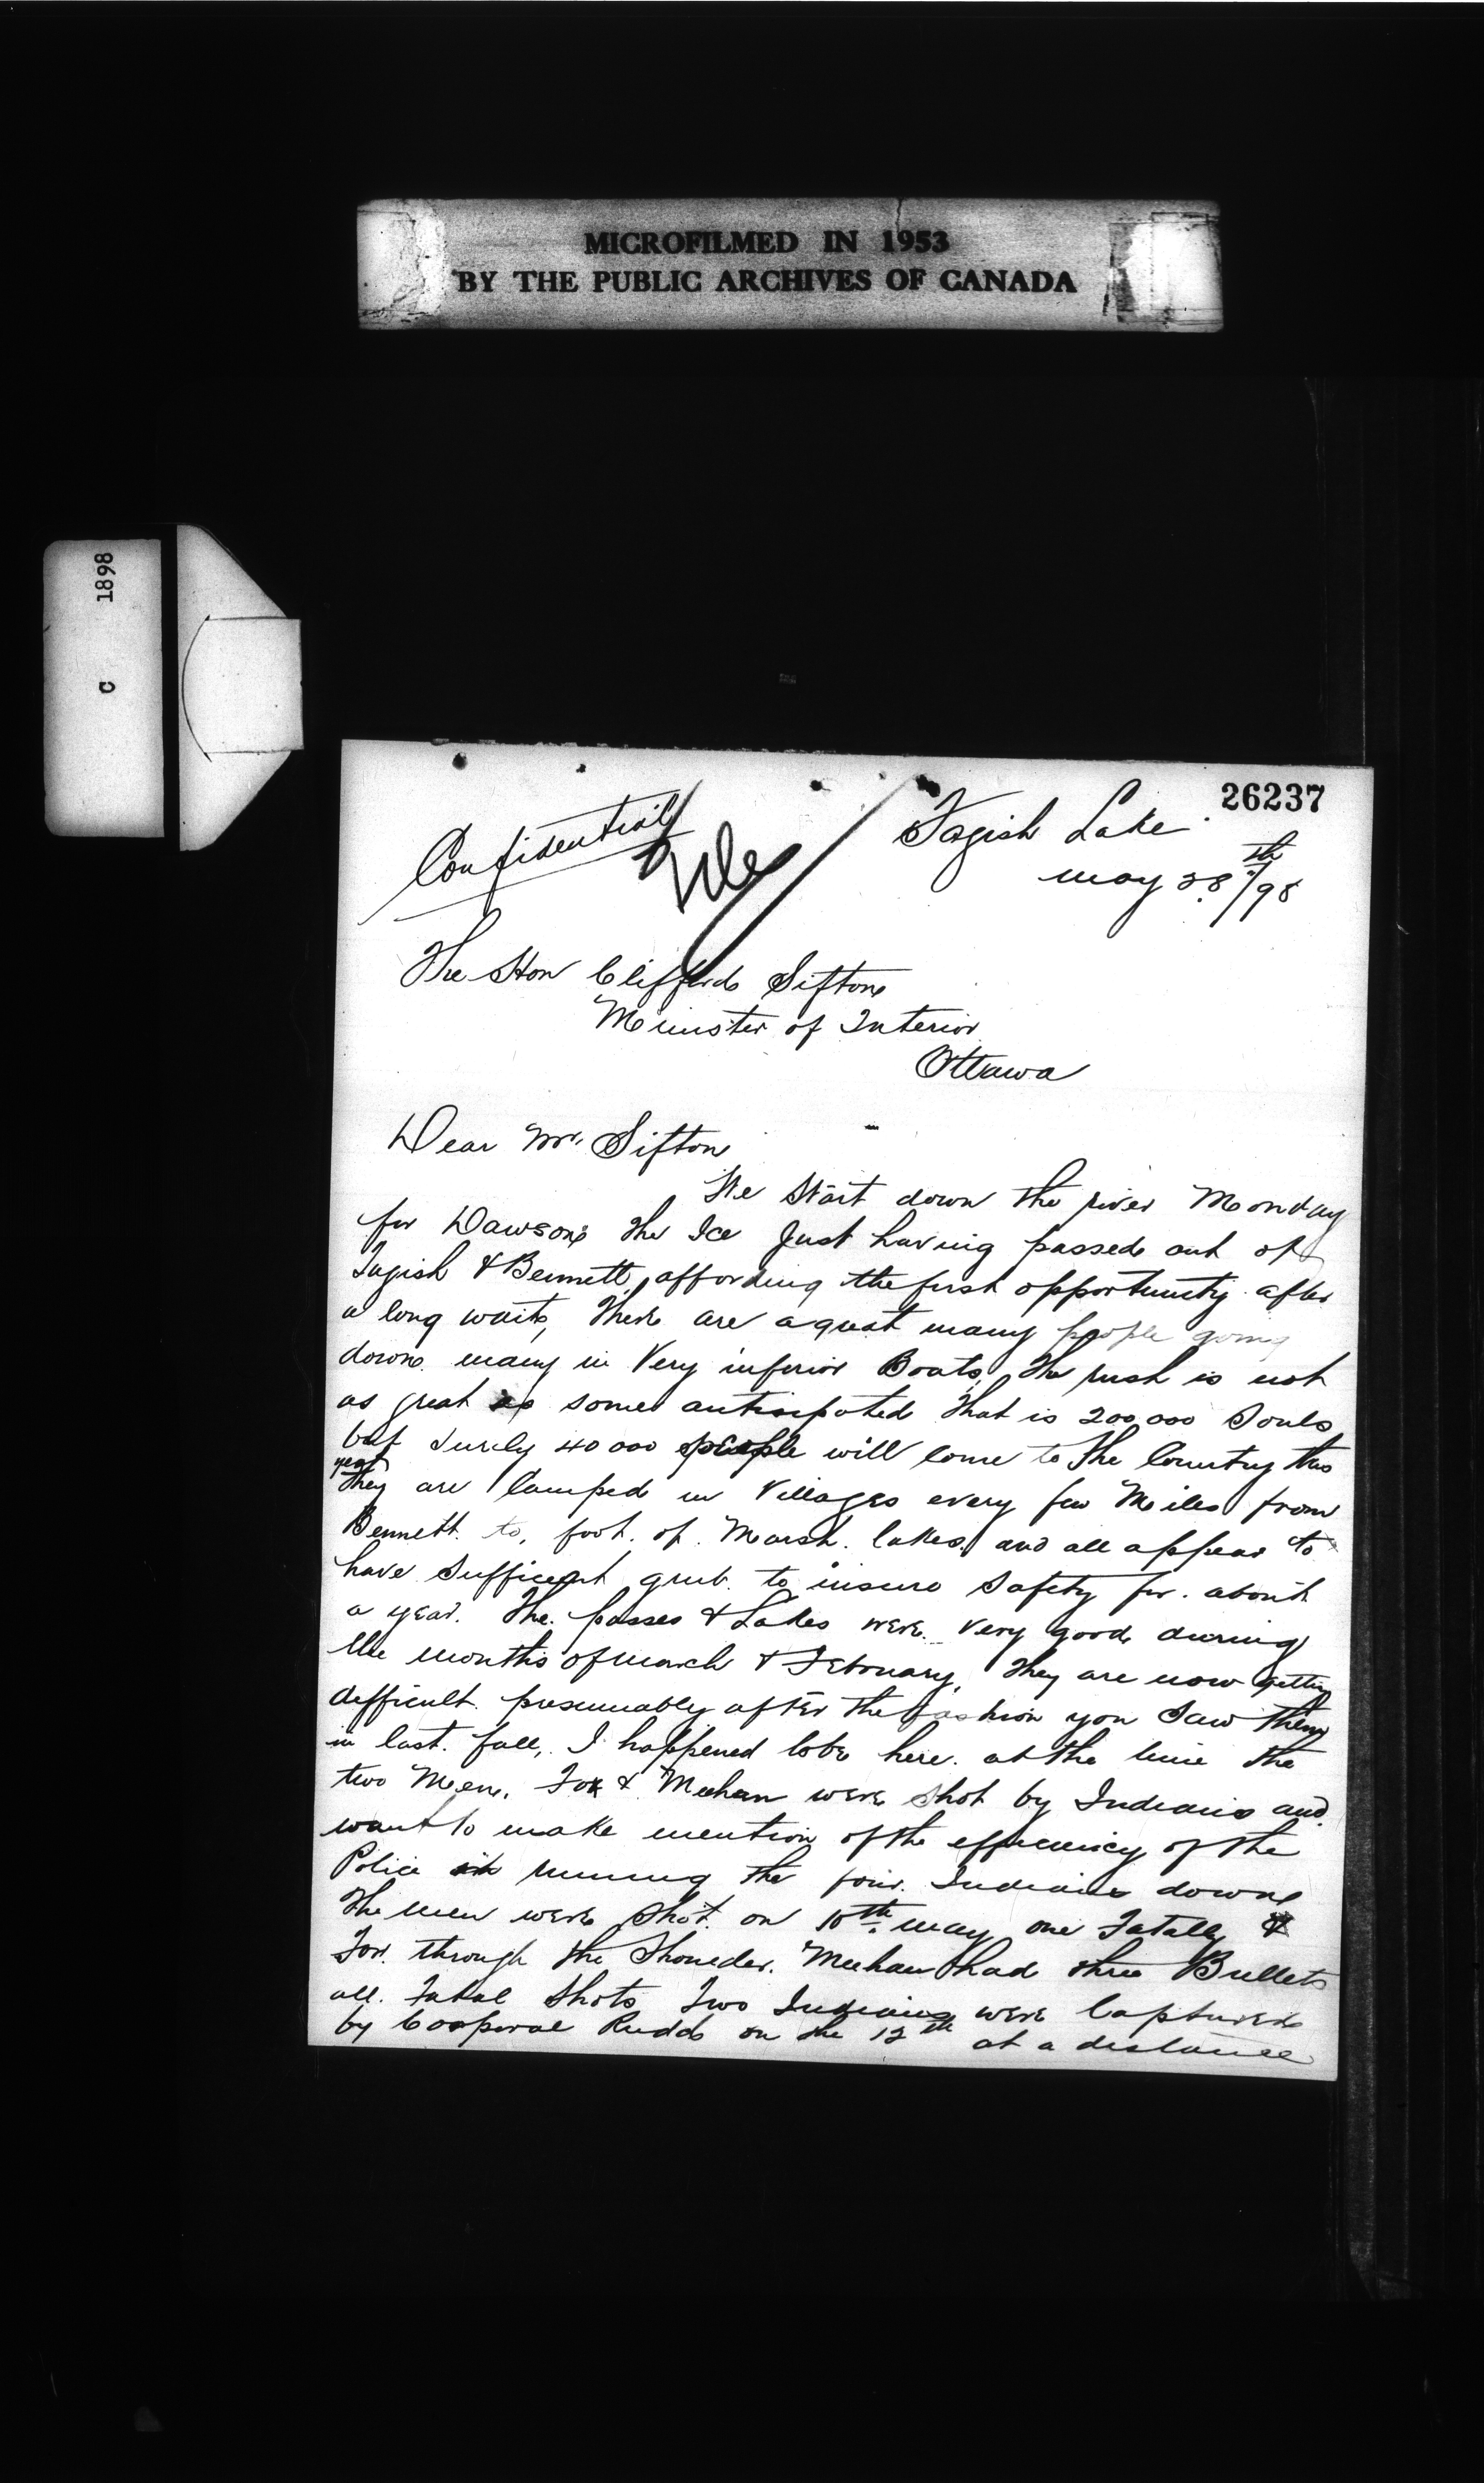 MICROFILMED IN 1953
BY THE PUBLIC ARCHIVES OF CANADA
C 1898
26237
Confidential
File
Tagish Lake
may 28th/98
The Hon Clifford Sifton
Minister of Interior
Ottawa
Dear Mr. Sifton
We Start down the river Monday
for Dawson the Ice Just having passed out of
Tagish & Bennett, affording the first opportunity after
a long wait, There are a great many people going
down many in Very inferior Boats, The rush is not
as great as some anticipated that is 200,000 Souls
but Surely 40000 people will come to the Country this
year
They are Camped in Villages every few Miles from
Bennett to, foot. of. Marsh. lakes. and all appear to
have Sufficient grub. to insure Safety for. about
a year. The. passes & Lakes were very good during
the months of march & February, They are now getting
difficult. presumably after the fashion you Saw them
in last. fall,. I happened to be here. at the time the
two Men. Fox & Meehan were Shot by Indians and
want to make mention of the efficiency of the
Police in running the four. Indians down
The men were Shot. on 10th. may one Fatally &
Fox. through the Shoulder. Meehan had three Bullets
all. Fatal Shots Two Indians were Captured
by Corporal Rudd on the 12th at a distance